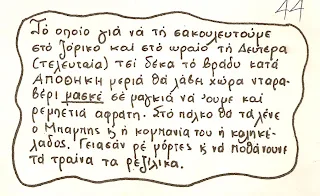 44
Τό οποίο γιά νά τή σακουλευτούμε
στό Ζόρικο καί στό ωραίο τή Δευτέρα
(τελευταία) τσί δέκα τό βράδυ κατά
ΑΠΟΘΗΚΗ μεριά θά λάβη χώρα νταρα-
βέρι μασκέ σέ μαγκιά νά 'ουμε καί
ρεμπετιά αφράτη. Στό πάλκο θά τά λένε
ο Μπάμπης ς ή κομπανία του ή κάληκέ-
λαδος. Γειασάν ρέ μόρτες ς νά ποθάνουνε
τά τραίνα τά ρεζίλικα.